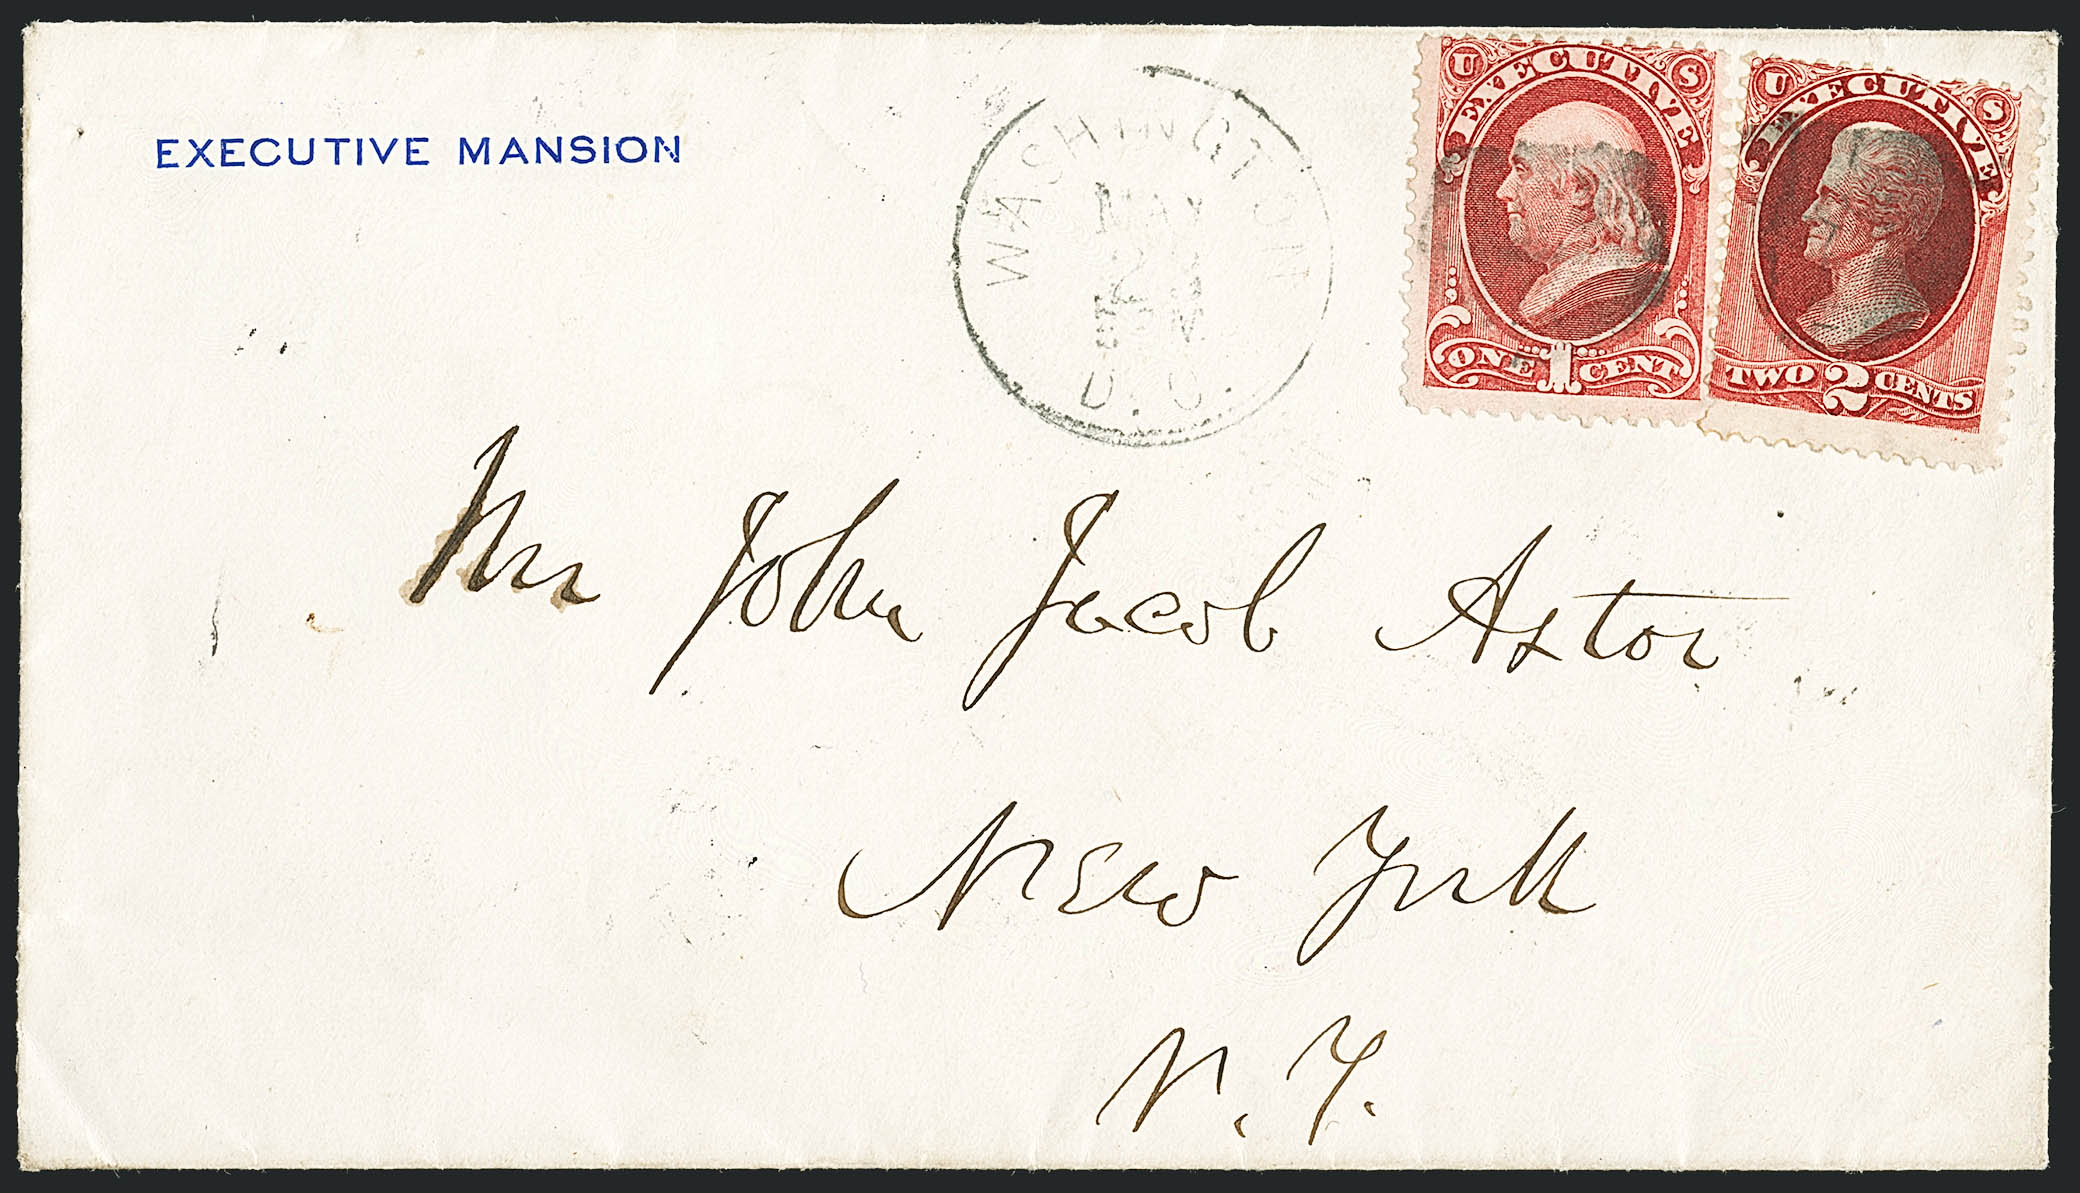 EXECUTIVE MANSION
WASHINGTON
MAY
D. C.
U EXECUTIVE S
ONE 1 CENT
U EXECUTIVE S
TWO 2 CENTS
Mr John Jacob Astor
New York
N. Y.